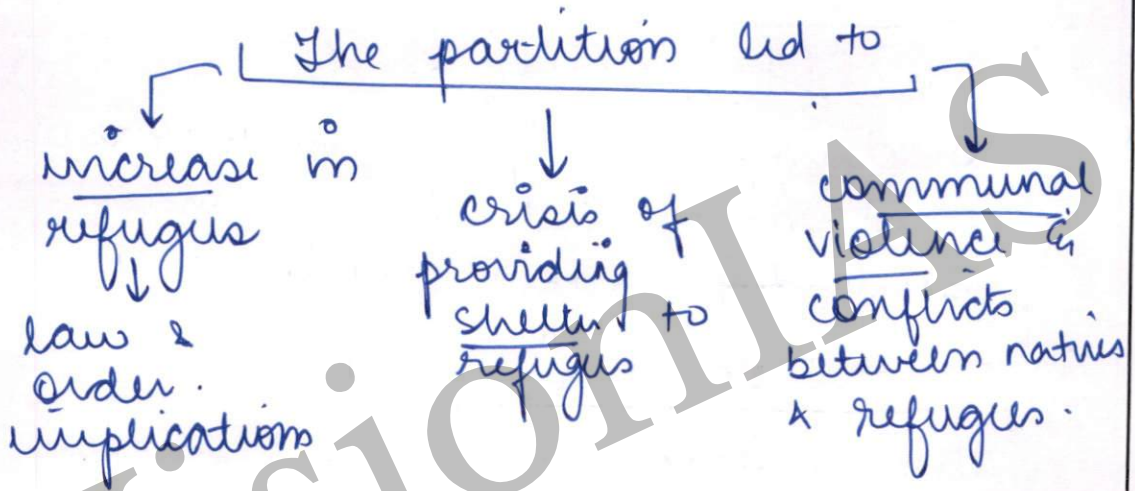 The partition led to
increase in
refugees
law &
order.
implications
crisis of
providing
shelter to
refugees
communal
violence &
conflicts
between natives
& refugees.
VisionIAS